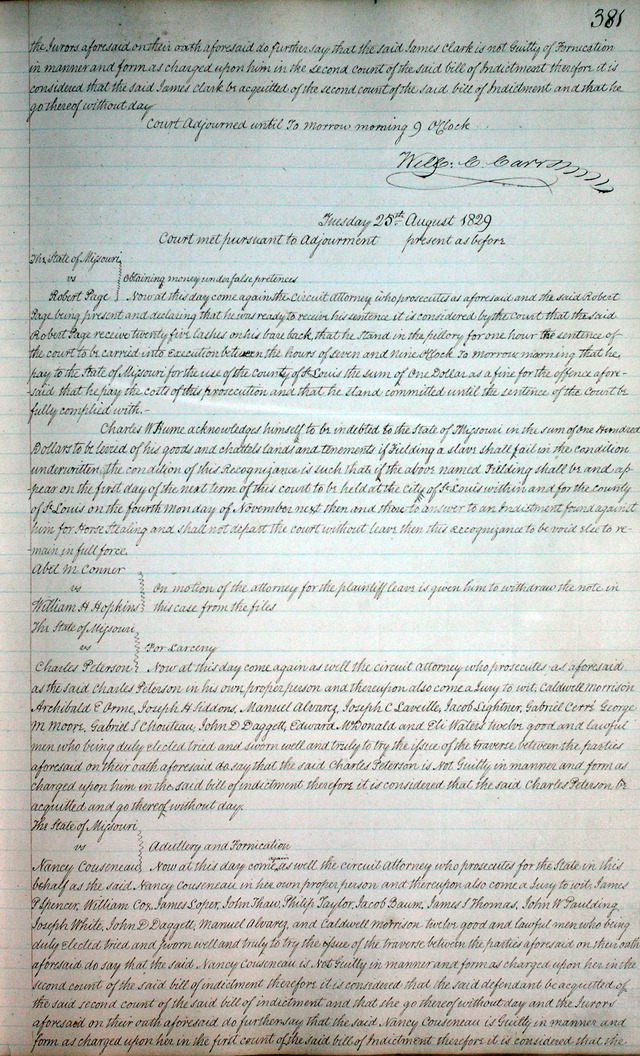 381
the Jurors aforesaid on their oath aforesaid do further say that the said James Clark is not Guilty of Fornication
in manner and form as charged upon him in the second count of the said bill of Indictment therefore it is
considered that the said James Clark be acquitted of the second count of the said bill of Indictment and that he
go thereof without day
Court Adjourned until To morrow morning 9 O'Clock
Will: C. Carr
Tuesday 25th August 1829
Court met pursuant to Adjourment present as before
The State of Missouri
vs Obtaining money under false pretences
Robert Page Now at this day come again the Circuit Attorney who prosecutes as aforesaid and the said Robert
Page being present and declaring that he was ready to receive his sentence it is considered by the Court that the said
Robert Page receive twenty five lashes on his bare back, that he stand in the pillory for one hour the sentence of
the court to be carried into Execution between the hours of seven and nine O'Clock To morrow morning that he,
pay to the State of Missouri for the use of the County of St Louis the sum of One Dollar as a fine for the offence afore-
-said that he pay the costs of this prosecution and that he stand committed until the sentence of the Court be
fully complied with.-
Charles W Hume acknowledges himself to be indebted to the State of Missouri in the sum of One Hundred
Dollars to be levied of his goods and chattels lands and tenements if Fielding a slave shall fail in the condition
underwritten, the condition of this Recognizance is such that if the above named Fielding shall be and ap-
-pear on the first day of the next term of this court to be held at the City of St Louis within and for the county
of St Louis on the fourth Monday of November next then and there to answer to an Indictment found against
him for Horse Stealing and shall not depart the court without leave then this recognizance to be void else to re-
-main in full force.
Abel M Conner
vs On motion of the attorney for the plaintiff leave is given him to withdraw the note in
William H Hopkins this case from the files
The State of Missouri
vs For Larceny
Charles Peterson Now at this day come again as well the circuit Attorney who prosecutes as aforesaid
as the said Charles Peterson in his own proper person and thereupon also come a Jury to wit, Caldwell Morrison
Archibald E Orme, Joseph H Siddons, Manuel Alvarez, Joseph C Laveille, Jacob Lightner, Gabriel Cerré George
M Moore, Gabriel S Chouteau, John D Daggett, Edward McDonald and Eli Waters twelve good and lawful
men who being duly elected tried and sworn well and truly to try the issue of the traverse between the parties
aforesaid on their oath aforesaid do say that the said Charles Peterson is Not Guilty in manner and form as
charged upon him in the said bill of indictment therefore it is considered that the said Charles Peterson be
acquitted and go thereof without day.
The State of Missouri
vs Adultery and Fornication
Nancy Couseneau Now at this day come again as well the circuit Attorney who prosecutes for the State in this
behalf as the said Nancy Couseneau in her own proper person and thereupon also come a Jury to wit; James
P Spencer, William Cox, James Loper, John Thaw, Philip Taylor, Jacob Baum, James S Thomas, John W Paulding
Joseph White, John D Daggett, Manuel Alvarez, and Caldwell Morrison twelve good and lawful men who being
duly Elected tried and sworn well and truly to try the issue of the traverse between the parties aforesaid on their oath
aforesaid do say that the said Nancy Couseneau is Not Guilty in manner and form as charged upon her in the
second count of the said bill of indictment therefore it is considered that the said defendant be acquitted of
the said second count of the said bill of indictment and that she go thereof without day and the Jurors
aforesaid on their oath aforesaid do further say that the said Nancy Couseneau is Guilty in manner and
form as charged upon her in the first count of the said bill of Indictment therefore it is considered that the